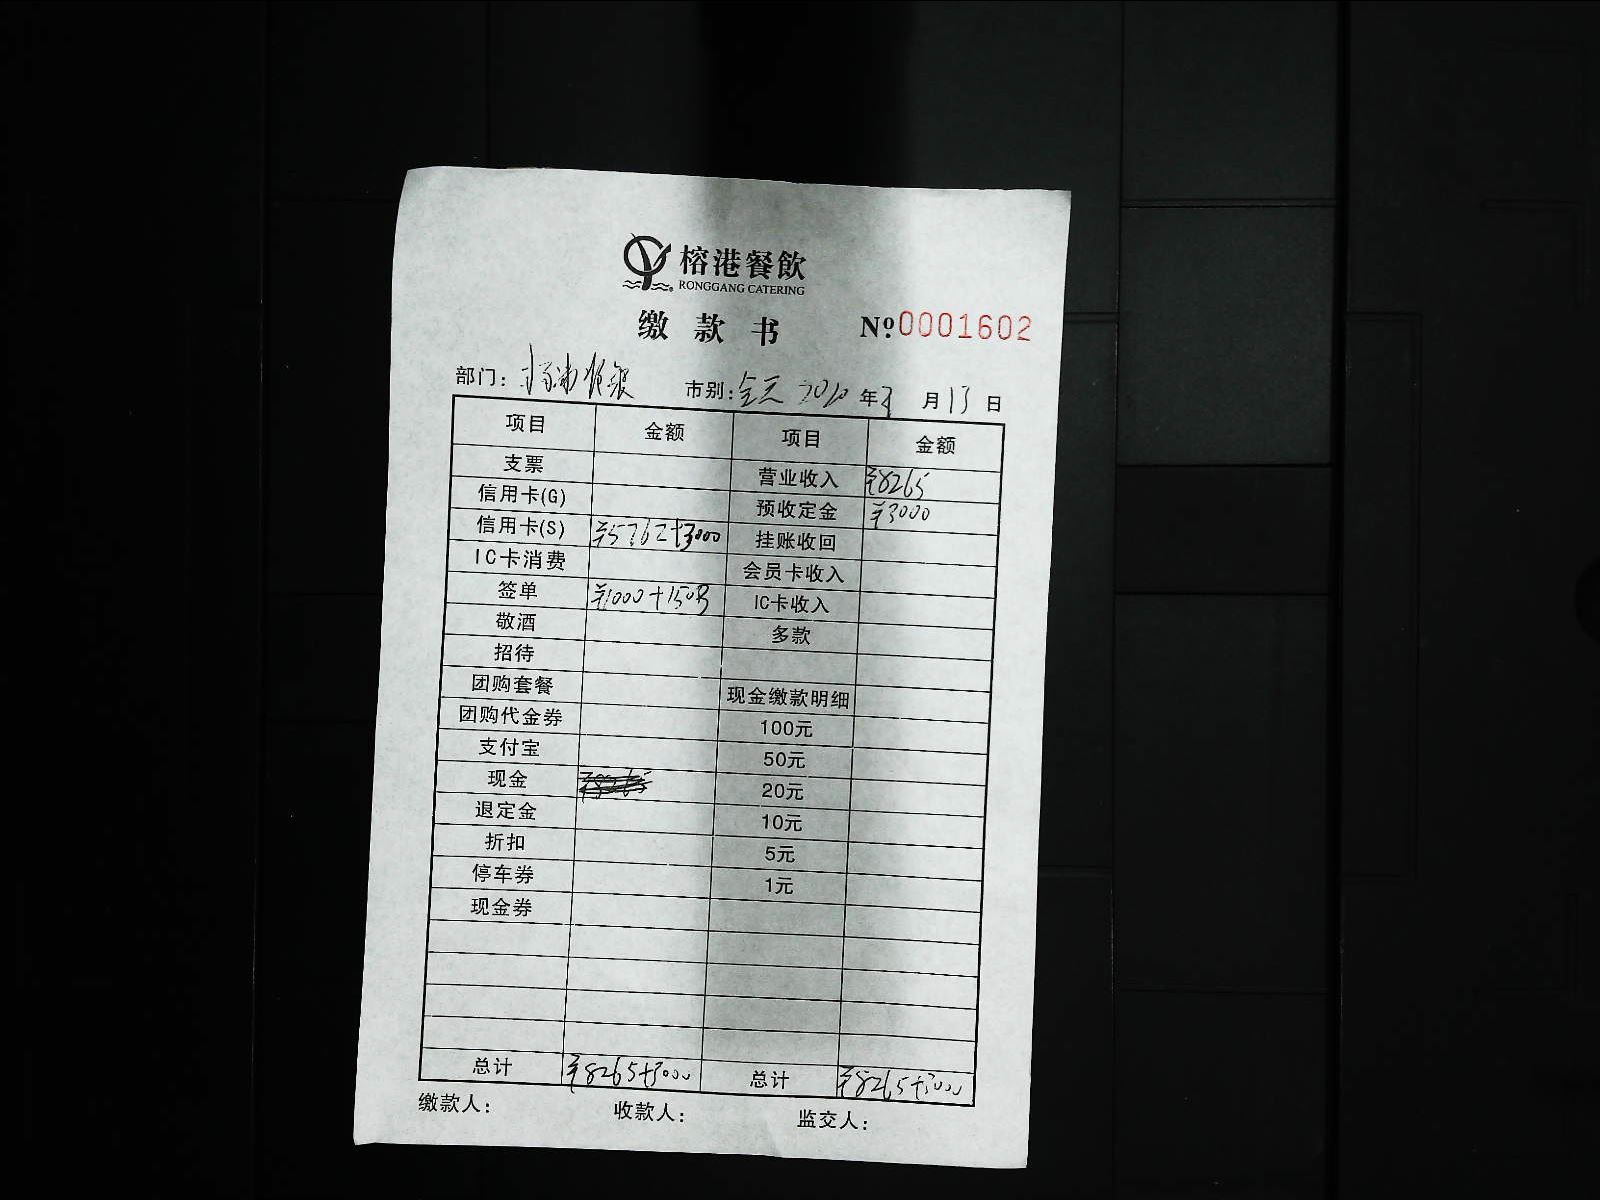 榕港餐飲
RONGGANG CATERING
缴款书 Nº0001602
部门：杨浦收银 市别：全天 2020年 月13日
项目 金额 项目 金额
支票 营业收入 ¥8265
信用卡(G) 预收定金 ¥3000
信用卡(S) ¥5762+3000 挂账收回
IC卡消费 会员卡收入
签单 ¥1000+1503 IC卡收入
敬酒 多款
招待
团购套餐 现金缴款明细
团购代金券 100元
支付宝 50元
现金 20元
退定金 10元
折扣 5元
停车券 1元
现金券
总计 ¥8265+3000 总计 ¥8265+3000
缴款人： 收款人： 监交人：